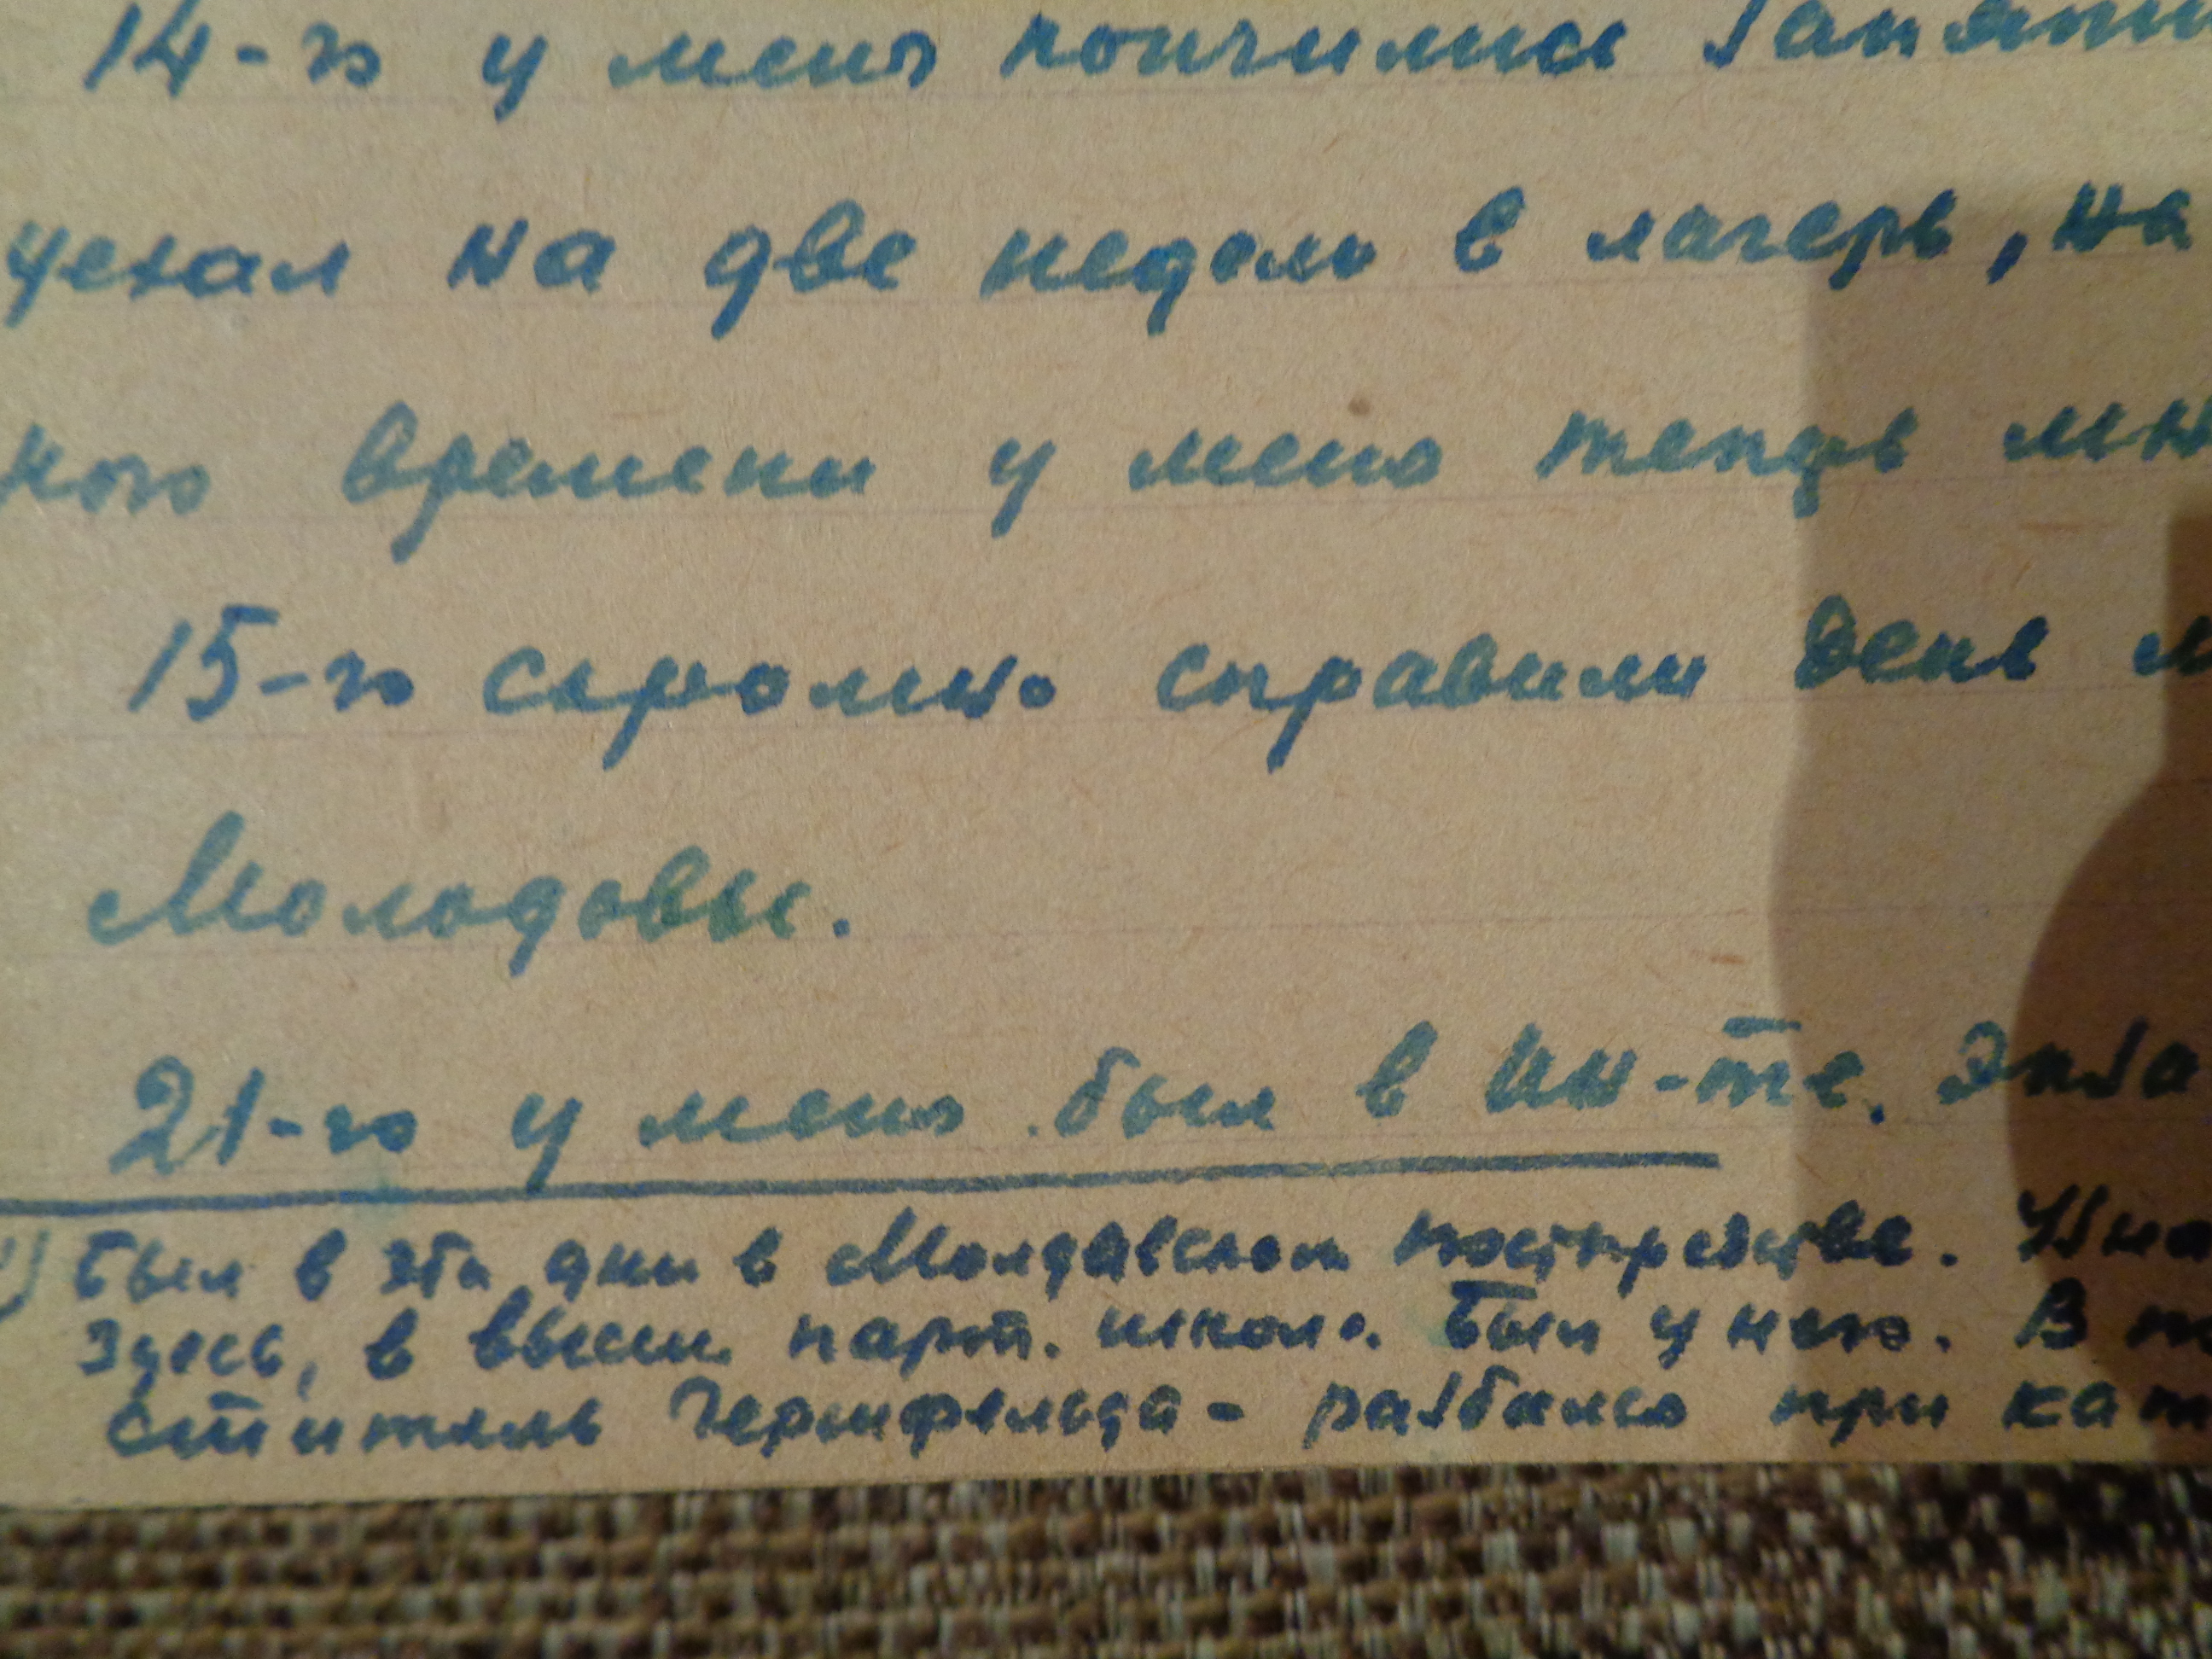 14-го у меня кончились заняти
уехал на две недели в лагерь, на
ного времени у меня теперь мн
15-го скромно справили день м
Молодовы.
21-го у меня был в ин-те. экза
1) Был в эти дни в Молдавском постпредстве. Узна
здесь, в высш. парт. школе. Был у него. В т
ститель Гершфельда - разбился при кат